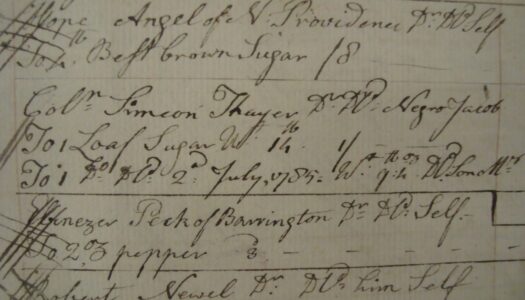 Hope Angel of N. Providence Dr. Dd. Self
To 4 lb Best brown Sugar /8
Coln. Simeon Thayer Dr. Dd. Negro Jacob
To 1 Loaf Sugar Wt. 14 lb 1/
To 1 Do. Dd. 2d. July, 1785. Wt. 9:4 Dd. Son Mr
Ebenezer Peck of Barrington Dr Dd. Self.
To 2 oz pepper 3
Robert Newel Dr. Dd. him Self